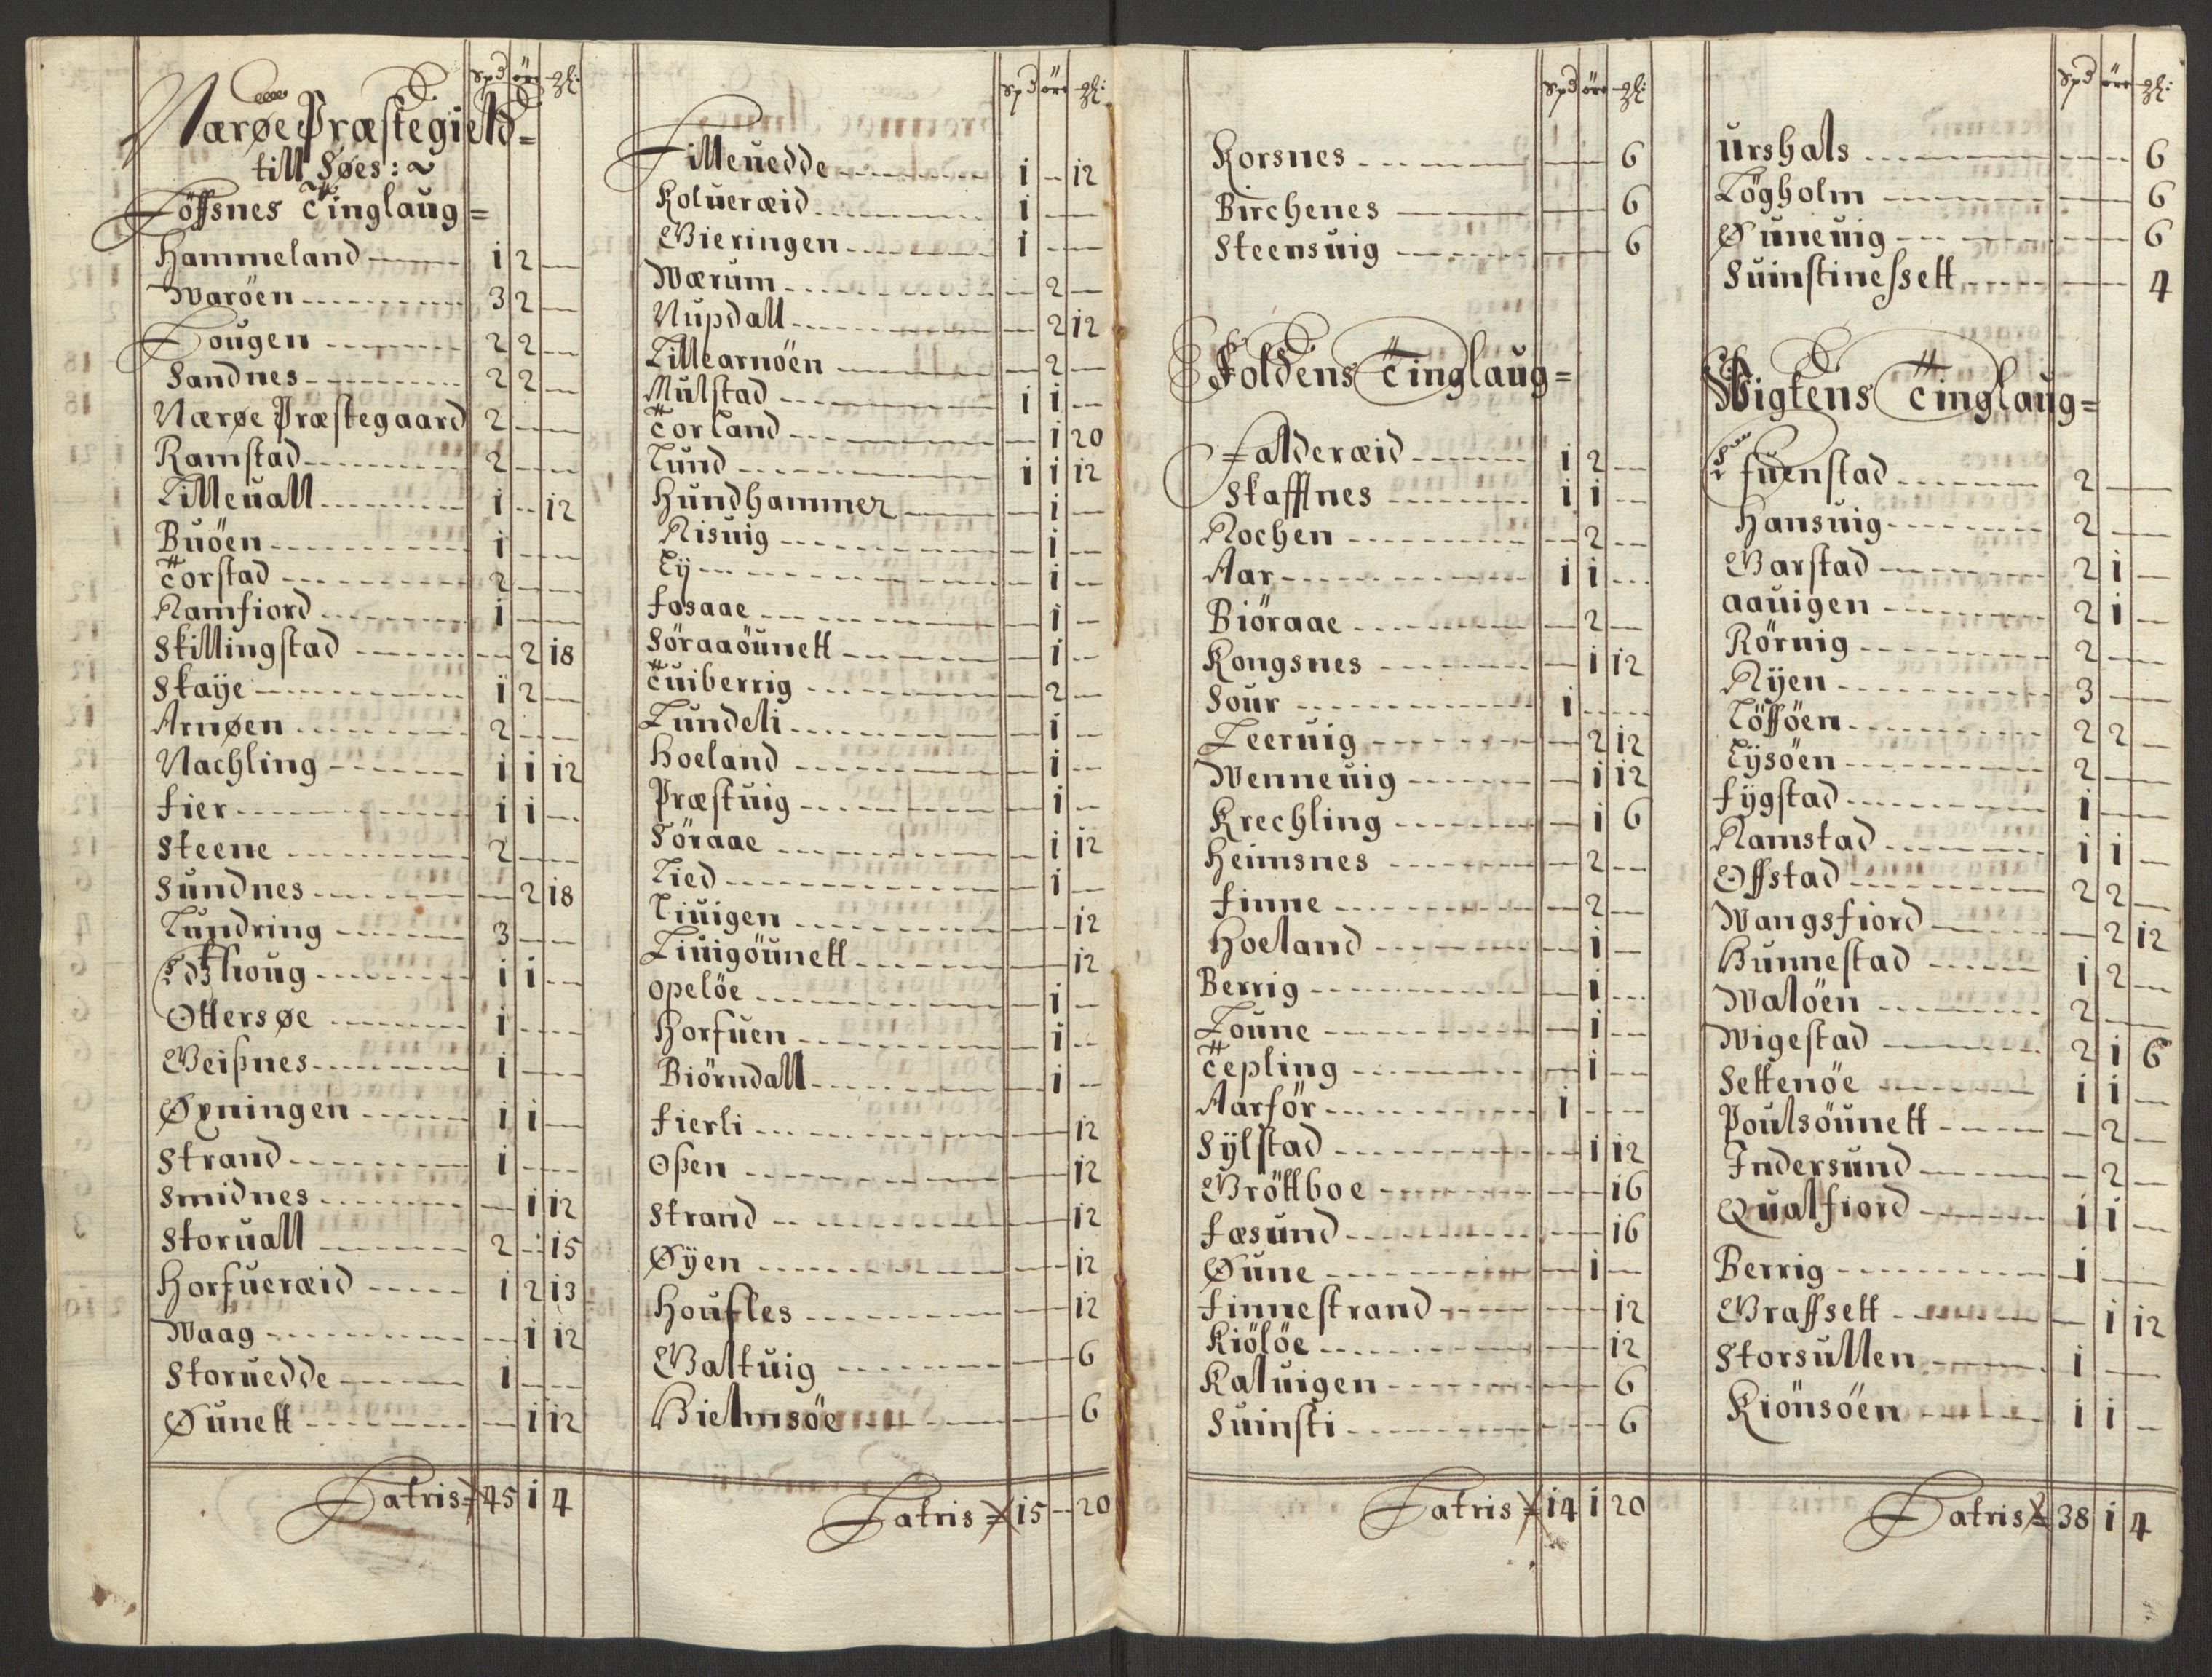 Spd öre gl:
Nærøe Præstegield=
till Søes:~
Föffsnes Tinglaug=
Hammeland 1 2 —
Waröen 3 2 —
Hougen 2 2 —
Sandnes 2 2 —
Nærøe Præstegaard 2 — —
Ramstad 2 — —
Lilleuall 1 — 12
Buöen 1 — —
Torstad 2 — —
Ramfiord 1 — —
Skillingstad — 2 18
Skaÿe 1 2 —
Arnøen 2 — —
Nachling 1 1 12
Fier 1 1 —
Steene 2 — —
Sundnes — 2 18
Lundring 3 — —
Edzhoug 1 1 —
Ottersøe 1 — —
Geißnes 1 — —
Øxningen 1 1 —
Strand 1 — —
Smidnes — 1 12
Storuall 2 — 15
Horfueræid 1 2 13
Waag — 1 12
Storuedde 1 — —
Øunett — 1 12
Latris= 45 1 4
Spd öre gl:
Lilleuedde 1 — 12
Kolueræid 1 — —
Gieringen 1 — —
Wærum — 2 —
Nupdall — 2 12
Lillearnöen — 2 —
Mulstad 1 1 —
Torland — 1 20
Lund 1 1 12
Hundhammer — 1 —
Risuig — 1 —
Eÿ — 1 —
Fosaae — 1 —
Söraaöunett — 1 —
Tuiberrig — 2 —
Lundeli — 1 —
Hoeland — 1 —
Præstuig — 1 —
Söraae — 1 12
Lied — 1 —
Liuigen — — 12
Liuigöunett — — 12
Opelöe — 1 —
Horfuen — 1 —
Biörndall — 1 —
Fierli — — 12
Oßen — — 12
Strand — — 12
Øÿen — — 12
Houfles — — 12
Galtuig — — 6
Hielmsöe — — 6
Latris= 15 — 20
Spd öre gl:
Korsnes — — 6
Birchenes — — 6
Steensuig — — 6
Foldens Tinglaug=
Falderæid 1 2 —
Skaffnes 1 1 —
Rochen — 2 —
Aar 1 1 —
Biöraae — 2 —
Kongsnes — 1 12
Sour 1 — —
Leeruig — 2 12
Wenneuig — 1 12
Krechling — 1 6
Heimsnes — 2 —
Finne — 2 —
Hoeland — 1 —
Berrig — 1 —
Toune — 1 —
Tepling — 1 —
Aarför 1 — —
Sÿlstad — 1 12
Gröttboe — — 16
Fæsund — — 16
Øune — 1 —
Finnestrand — — 12
Kiölöe — — 12
Kaluigen — — 6
Suinsti — — 6
Latris= 14 1 20
Spd öre gl:
Urshals — — 6
Lögholm — — 6
Øuneuig — — 6
Suinstinessett — — 4
Wigtens Tinglaug=
Efuenstad 2 — —
Hansuig 2 — —
Garstad 2 1 —
Aauigen 2 1 —
Röruig 2 — —
Rÿen 3 — —
Löfföen 2 2 —
Lÿsöen 2 — —
Fÿgstad 1 — —
Ramstad 1 1 —
Offstad 2 2 —
Wangsfiord — 2 12
Hunnestad 1 2 —
Walöen 2 — —
Wigestad 2 1 6
Settenöe 1 1 —
Poulsöunett — 2 —
Indersund — 2 —
Qualfiord 1 1 —
Berrig 1 — —
Graffsett — 1 12
Storsullen 1 — —
Kiönsöen 1 1 —
Latris= 38 1 4